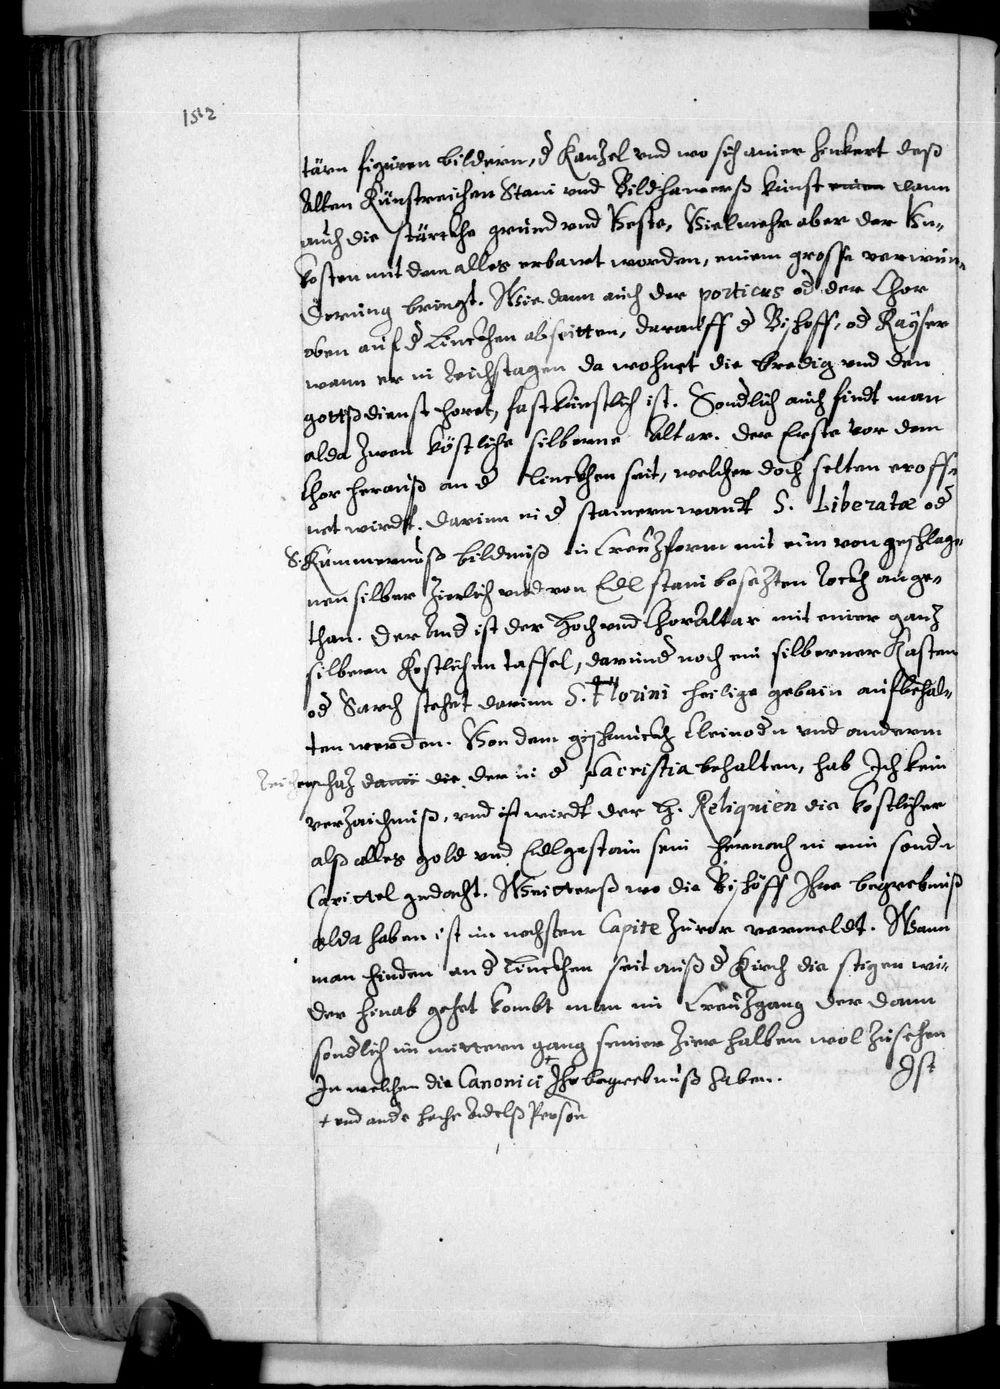 152
tärn figuren bildern, d Kanzel vnd wo sich ainer hinkert deß
Alten Künstreichen Stain vnd Bildhawerß kunst dann
auch die stärckhe grund vnd Veste, Vielmehr aber der Vn¬
kosten mit dem alles erbawt worden, einem grosse verwun¬
derung bringt. Wie dann auch der porticus od der Chor
oben auf d Linckhen abseitten, darauff d Bischoff, od Kayser
wann er in Reichstagen da wohnet die Predig vnd den
gottßdienst horet, fast künstlich ist. Sondlich auch findt man
alda zwen köstliche silberne Altar. Der Erste vor dem
Chor herauß an d linckhen seit, welcher doch selten eroff¬
net wirdt. darinn in d stainern wandt S. Liberatæ od
S. Kummernuß bildniß in Creuzform mit eim von geschlage¬
nen silber zierlich vnd von Edl stain besezten Rockh ange¬
than. Der And ist der Hoch vnd Chor Altar mit einer ganz
silbern Kostlichen taffel, darund noch ein silberner Kasten
od Sarch stehet darinn S. Florini heilige gebain aufbehal¬
ten werden. Von dem geschmuckh Cleinodn vnd anderm
schaz die der in d Sacristia behalten, hab Ich kein
verzaichniß, vnd ist wirdt der H. Reliquien die kostlicher
alß alles gold vnd Edlgestain sein hernach in eim sondn
Capittel gedacht. Weitterß wo die Bischöff Ihre begrebniß
alda haben ist im nechsten Capite zuvor vermeldt. Wann
man hinden an d Linckhen seit auß d Kirch die stigen wi¬
der hinab gehet kombt man in Creuzgang der dann
sondlich im mittern gang seiner Zier halben wol zusehen
In welchen die Canonici + Ihr begrebnuß haben. Ist
+ vnd ande hoche Adelß Person